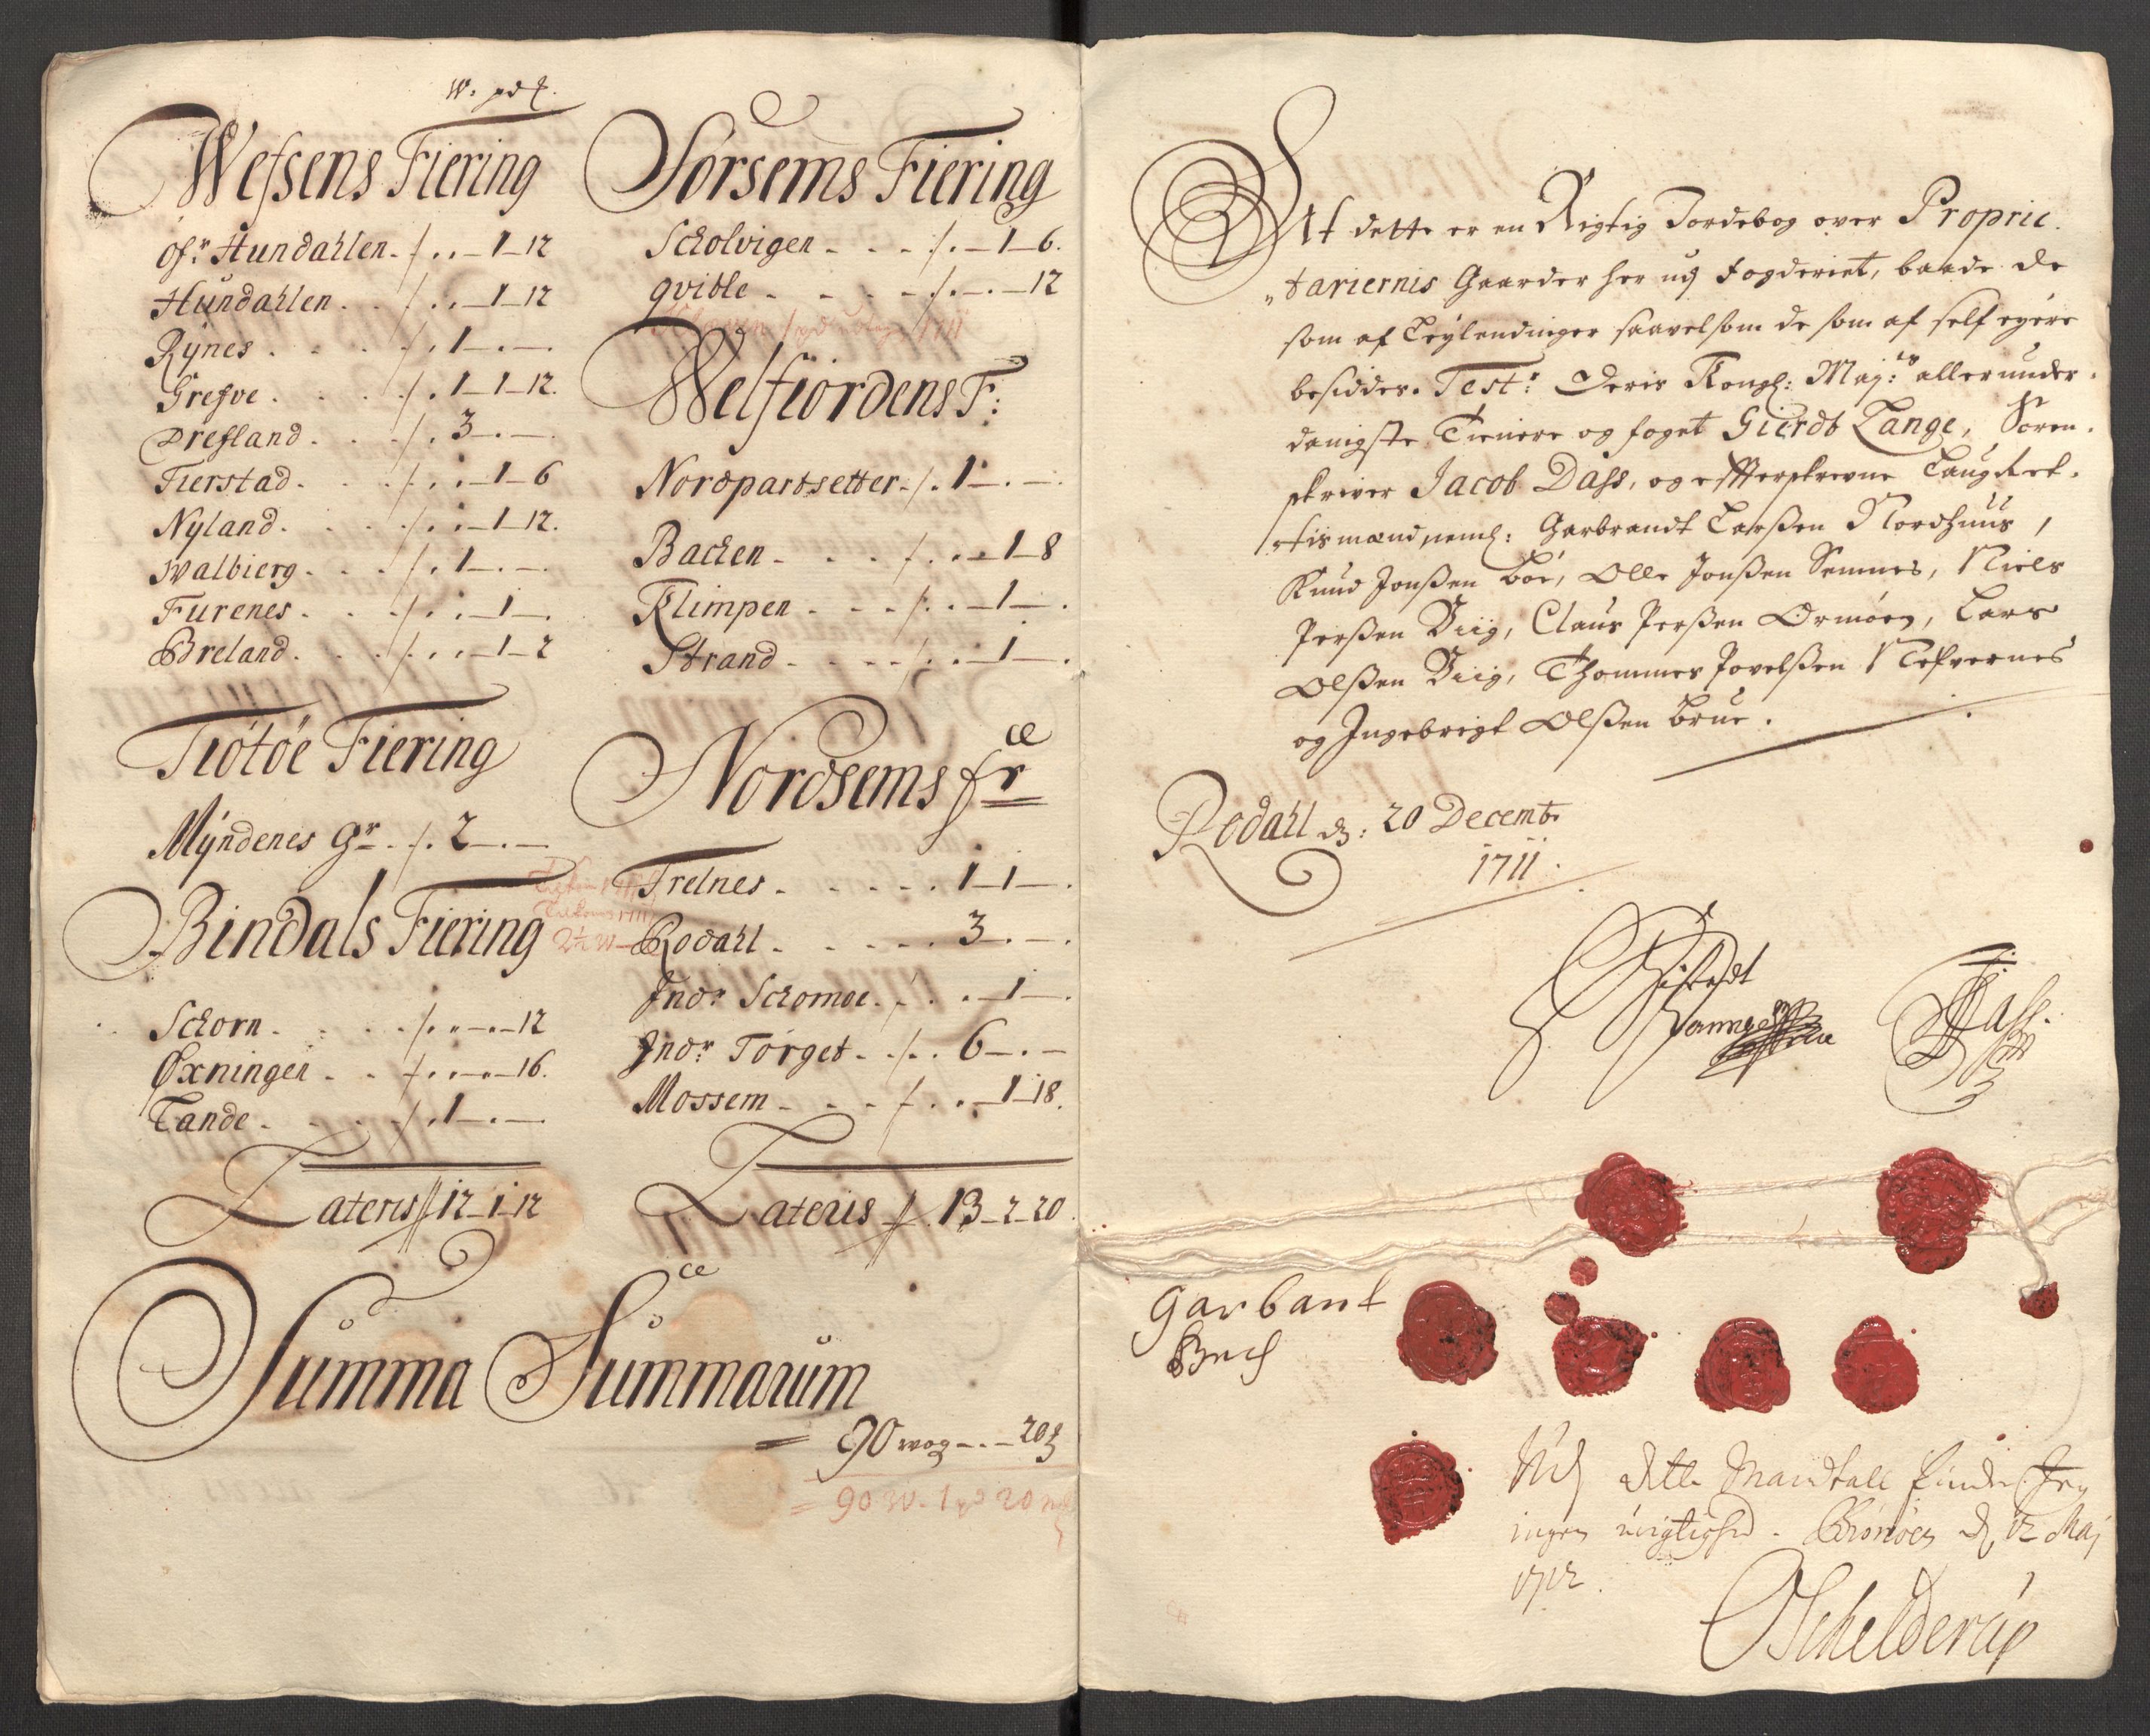 W: pd ℔.
Wefsens Fiering
ofr Hundahlen . / . . – 1 – 12
Hundahlen . . / . . – 1 – 12
Rÿnes . . . / . 1 – . –
Grefve . . . / . 1 – 1 – 12.
Drefland . . . / . 3 – . –
Tierstad . . . / . . – 1 – 6
Nyland . . . / . . – 1 – 12.
Walbierg . . . / . 1 – . –
Furenes . . . / . . – 1 – .
Breland . . . / . . . – 1 – 2
Tiötöe Fiering
Mÿndenes Gr . / . 2 – . –
Bindals Fiering
Schorn . . . / . . – . – 12
Øxningen . . / . . . – 16.
Tande . . . / . 1 – . –
Lateris // 12 – 1 – 12
Sörsems Fiering
Scholvigen . . . / . – 1 – 6.
qvible . . . / . – . – 12
1711
Welfiordens F:
Nordpartsetter . / . 1 – . –
Backen . . . / . . – 1 – 8
Klimpen . . . / . . – 1 – .
Strand . . . / . . – 1 – .
Nordsems fr
Trelnes . . . . . 1 – 1 – .
2½ W
Rodahl . . . . . 3 – . – .
Indr Schomoe . . . . – 1 – .
Indr Törget . . / . . 6 – . –
Mossem . . . / . . – 1 – 18.
Lateris // 13 – 2 – 20.
Summa Summarum
= 90 wog – . – 20 ℔
= 90 W – 1 pd 20 mk
At dette er en Rigtig Jordebog over Proprie.
„tariernis Gaarder her udj Fogderiet, baade de
som af Leylendinger saavelsom de som af self eyere
besiddes. Testr: Deris Kongl: Maj:ts allerunder.
danigste Tienere og foget Gierdt Lange, Soren.
skriver Jacob Dass, og efftterskrevne Laugret.
„tismænd neml: Garbrandt Larßen Nordhuus,
Knud Jonßen Böe, Olle Jonßen Semnes, Niels
Perßen Viig, Claus Perßen Ormöen, Lars
Olßen Viig, Thommes Povelßen Nefvernes
og Ingebrigt Olßen Brue.
Rodahl d: 20 Decembr
1711.
JDass.
Garbant
Ved dette Mandtall finder Jeg
ingen urigtighed. Brönöen d 12 Maj
1712.
OSchelderup